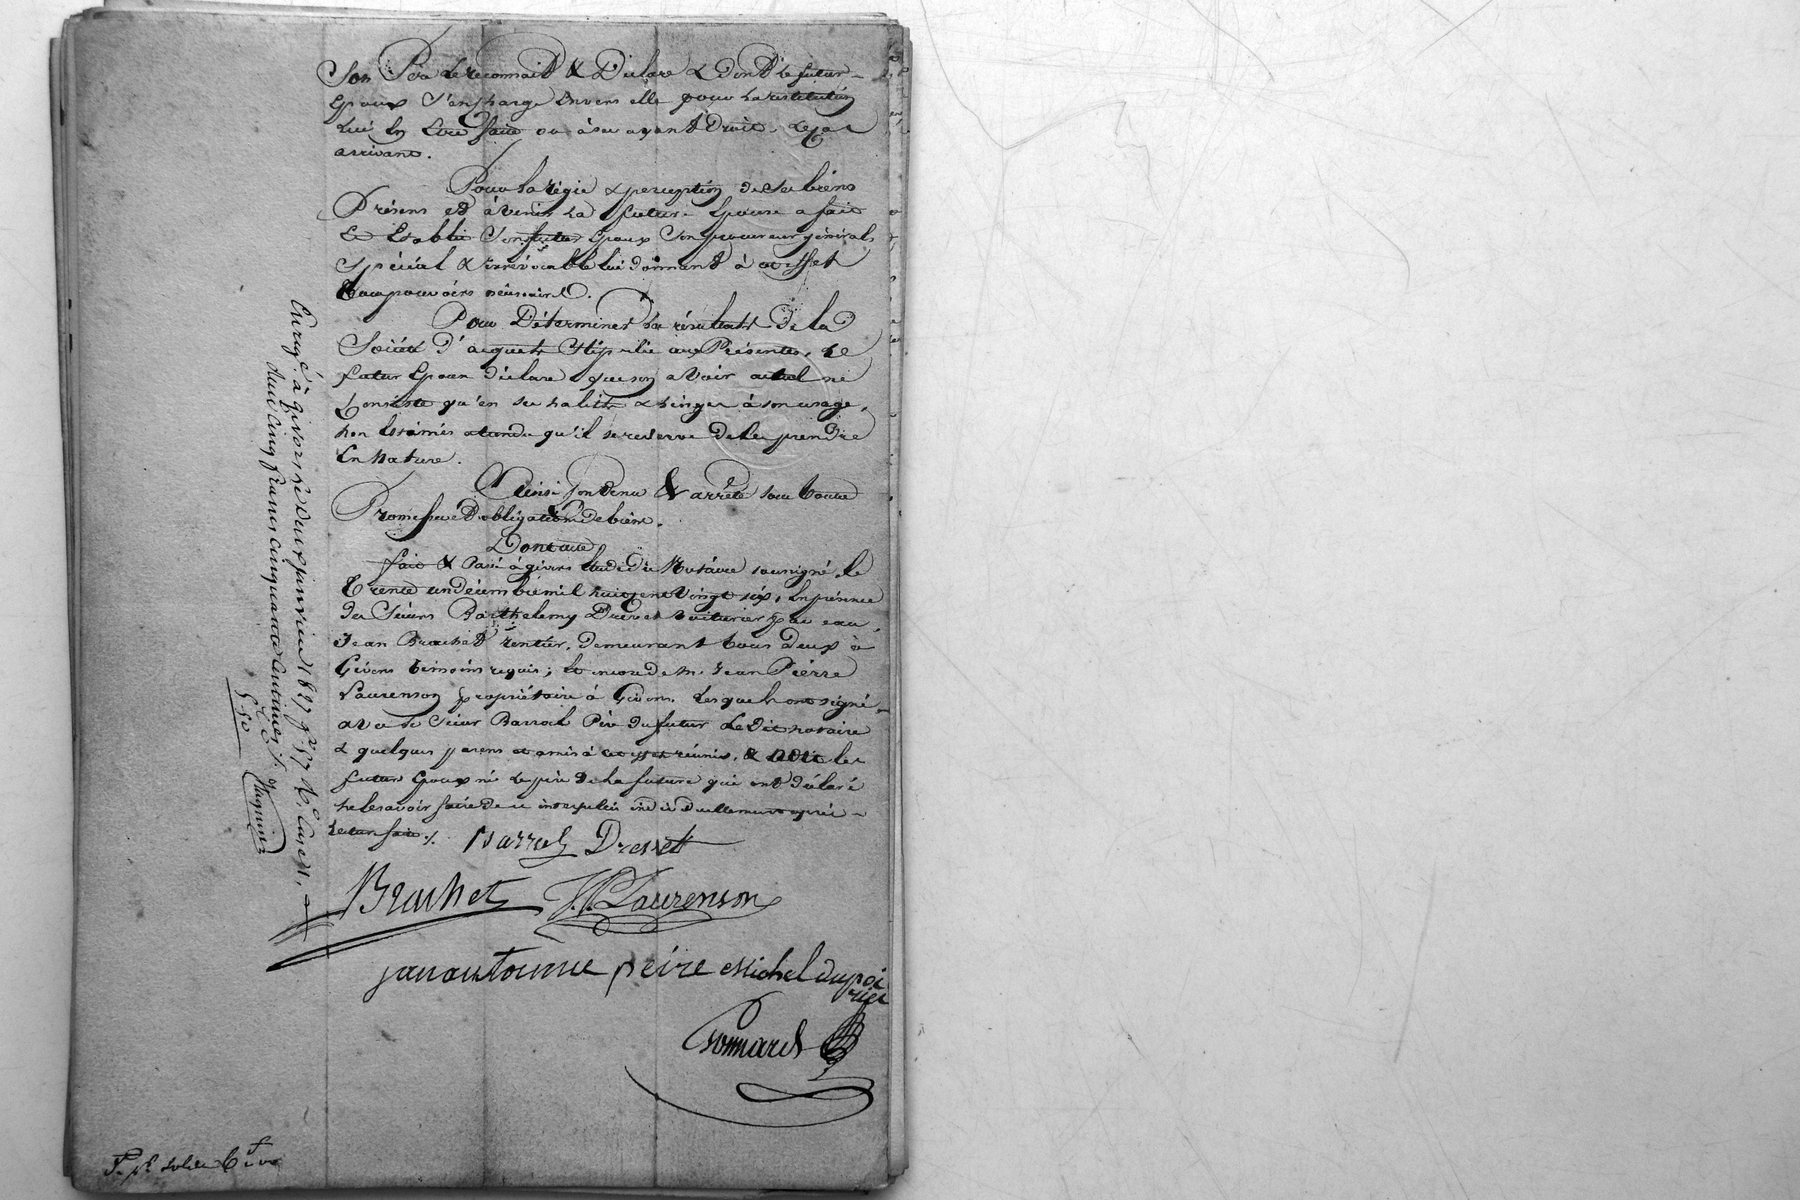 Son Père le reconnait & Déclare & dont le futur
Epoux S'en charge Envers elle pour la restitution
lui En Etre faite ou à ses ayant Droit, le cas
arrivant.
Pour la régie & perception de ses biens
Présens et à venir la future Epouse a fait
& Etabli Son futur Epoux Son procureur général,
Spécial & irrévocable lui donnant à cet effet
tous pouvoirs nécessaires.
Pour Déterminer les résultats de la
Société d'acquets Stipulée aux Présentes, le
futur Epoux déclare que son avoir actuel ne
Consiste qu'en ses habits & linges à son usage,
non Estimés attendu qu'il se reserve de les prendre
En Nature.
Ainsi Convenu & arrêté sous toutes
Promesses d'obligations de biens.
Dont acte
fait & Passé à givors Etude du Notaire soussigné, le
Trente un décembre mil huit cent vingt six, En présence
des Sieurs Barthelemy Drevet voiturier par eau,
Jean Brachet rentier, demeurant tous deux à
Givors temoins requis; & encore de m. Jean Pierre
Laurenson propriétaire à Givors, lesquels ont signé
avec le Sieur Barrel Père du futur Le Dit notaire
& quelques parens et amis à cet effet réunis, & non les
futurs Epoux ni le père de la future qui ont déclaré
ne le savoir faire de ce interpellés individuellement après
lecture faite ./.
Barrel Drevet
Brachet J. P. Laurenson
peire Michel dupoi
rier
Bonnard
Enregé à givors le deux janvier 1827 fo 57 Ro Case
Reçu Cinq francs Cinquante Centimes